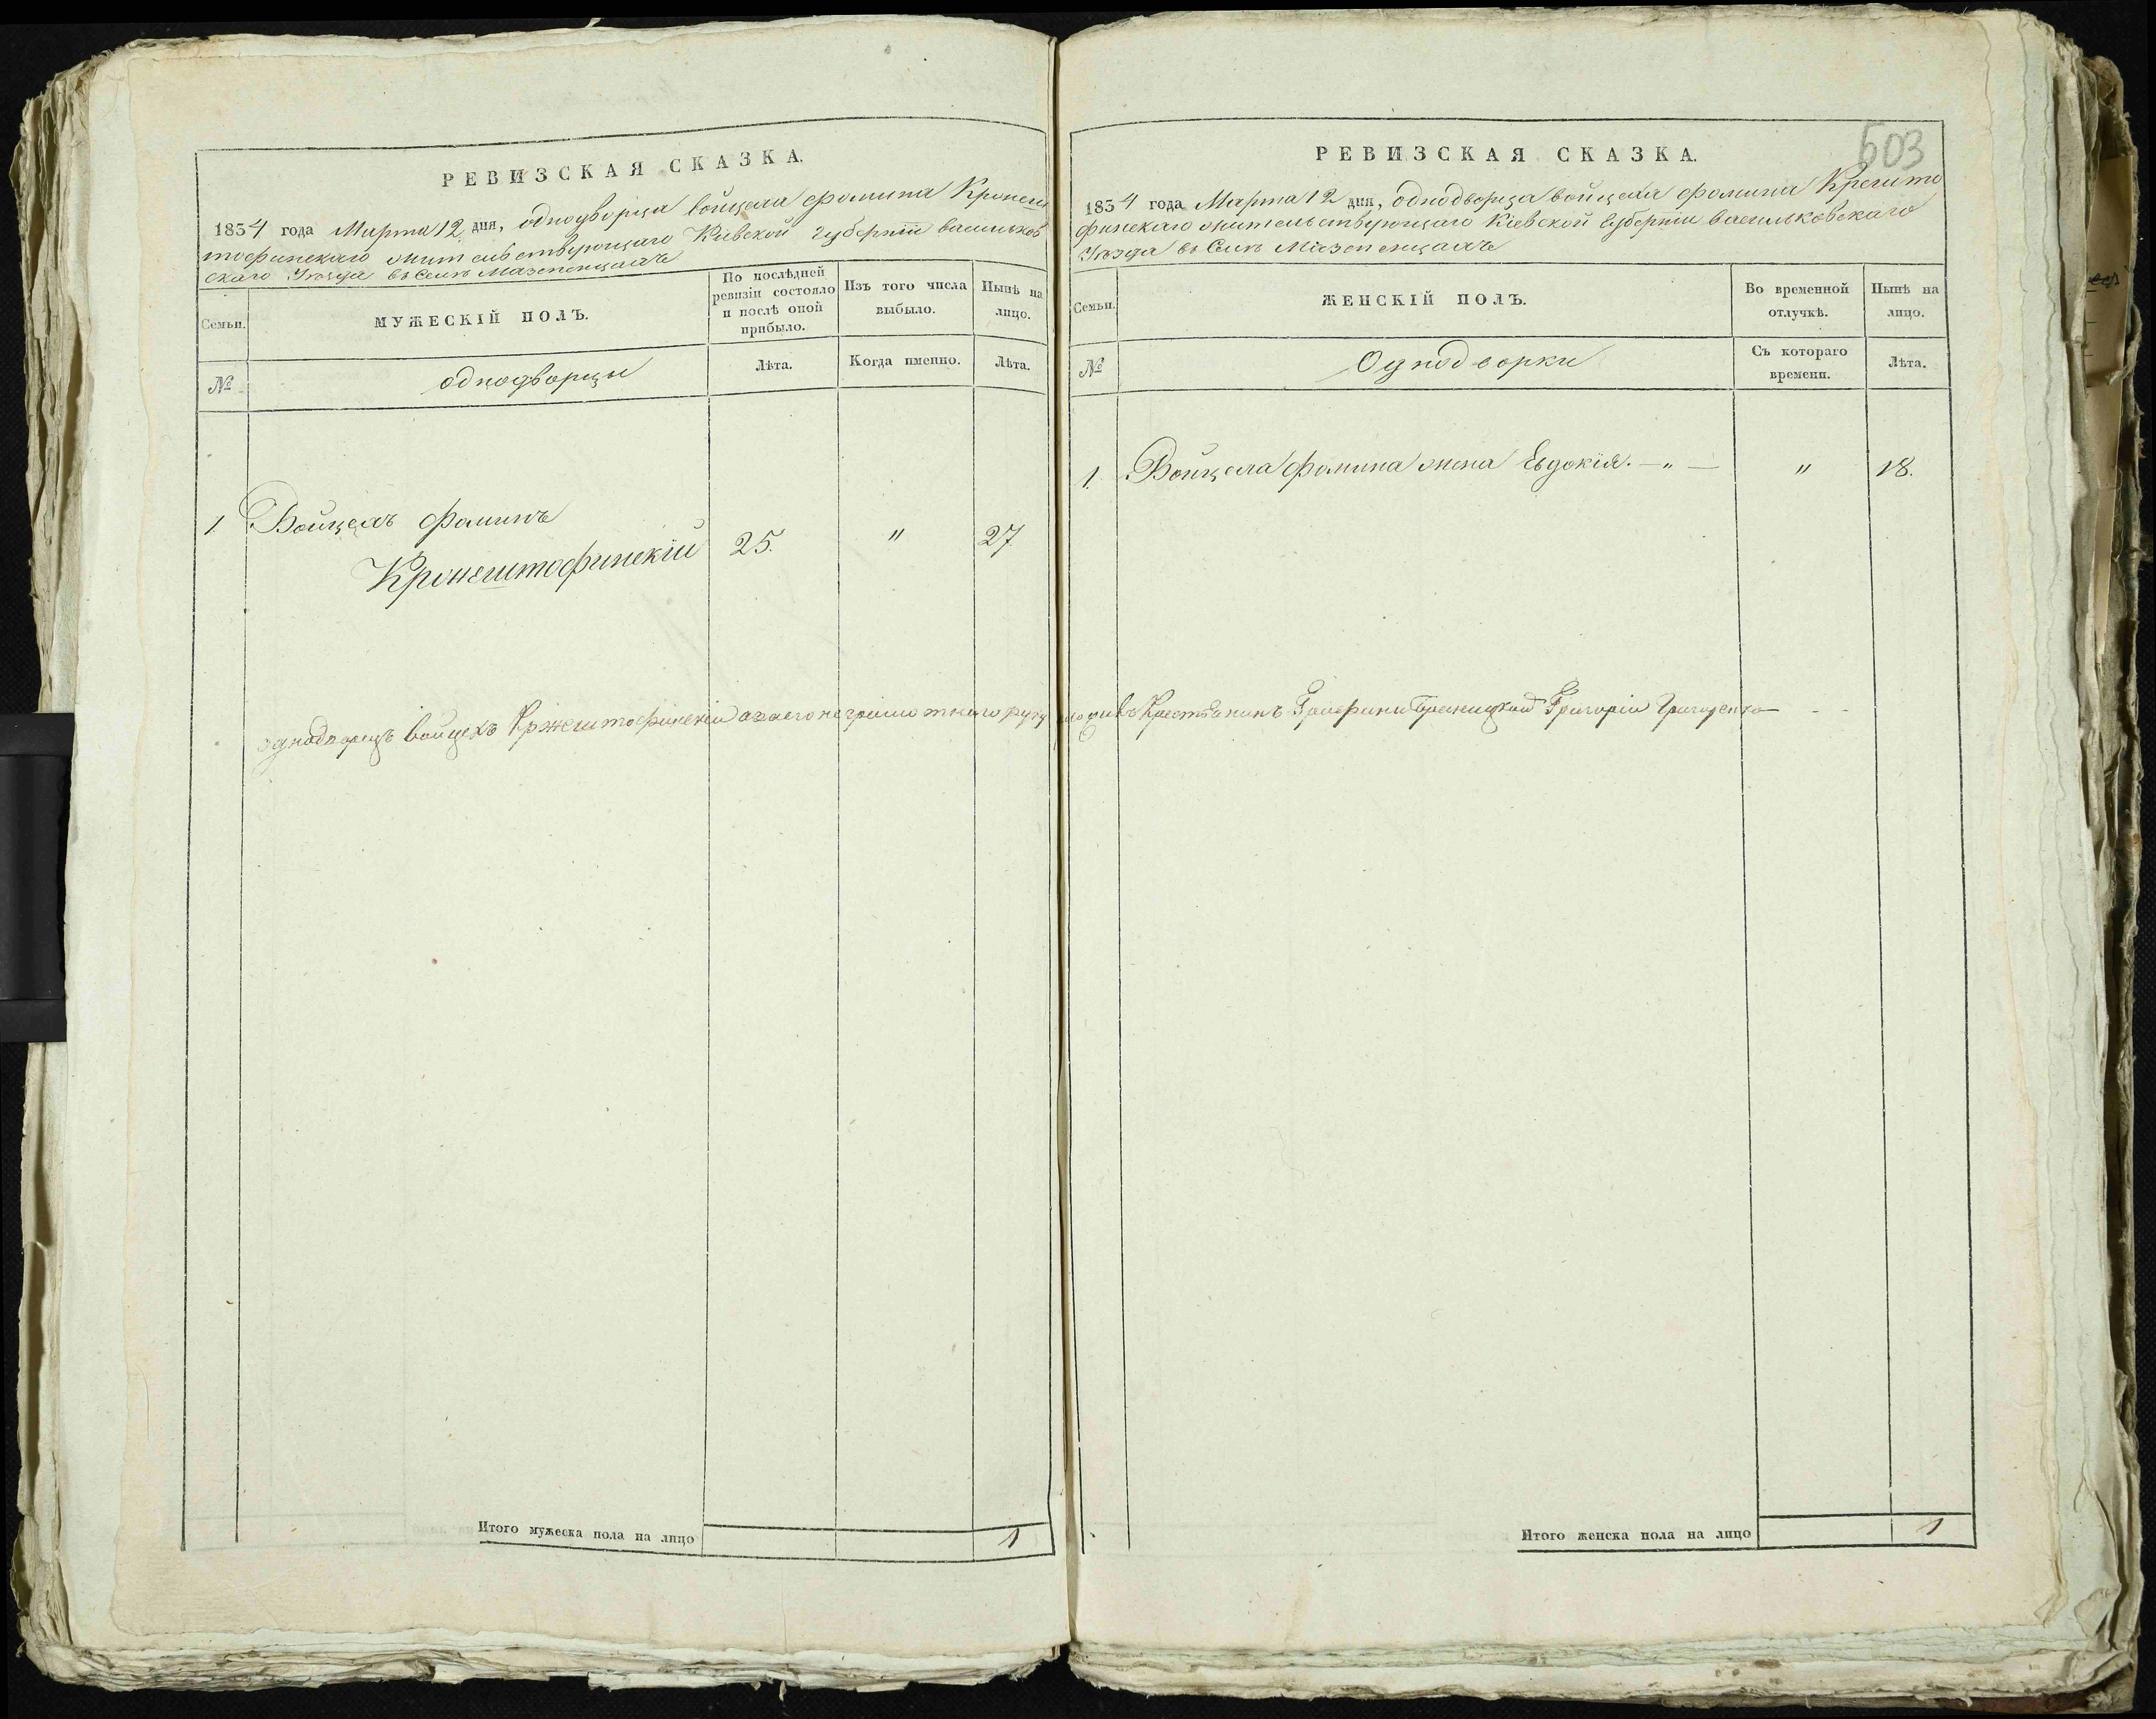 РЕВИЗСКАЯ СКАЗКА.
1834 года Марта 12 дня, однодворца войцеха фомина Кронеш
тофинскаго жительствующаго Кіевской губерніи васильков
скаго Уѣзда въ Селѣ Мазепенцахъ
Семьи.
МУЖЕСКІЙ ПОЛЪ.
По послѣдней ревизіи состояло и послѣ оной прибыло.
Изъ того числа выбыло.
Нынѣ на лицо.
№
однодворцы
Лѣта.
Когда именно.
Лѣта.
1 Войцехъ Фоминъ
Кронештофинскій 25. " 27
однодворецъ войцехъ Кржештофинскій а за его неграмотнаго руку приложивъ Крестьянинъ Графини Браницкой Григорій Григоренко
Итого мужеска пола на лицо 1
603
РЕВИЗСКАЯ СКАЗКА.
1834 года Марта 12 дня, однодворца войцеха фомина Крешто
финскаго жительствующаго Кіевской Губерніи васильковскаго
Уѣзда въ Селѣ Мазепенцахъ
Семьи.
ЖЕНСКІЙ ПОЛЪ.
Во временной отлучкѣ.
Нынѣ на лицо.
№
Однодворки
Съ котораго времени.
Лѣта.
1. Войцеха Фомина жена Евдокія. — " — " 18.
Итого женска пола на лицо 1